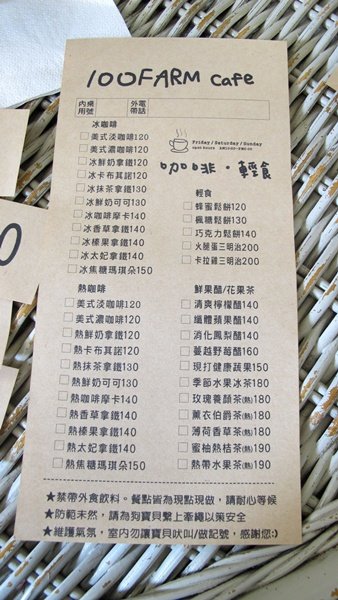 100FARM cafe
內桌
用號
外電
帶話
冰咖啡
□美式淡咖啡120
□美式濃咖啡120
□冰鮮奶拿鐵120
□冰卡布其諾120
□冰抹茶拿鐵130
□冰鮮奶可可130
□冰咖啡摩卡140
□冰香草拿鐵140
□冰榛果拿鐵140
□冰太妃拿鐵140
□冰焦糖瑪琪朵150
Friday / Saturday / Sunday
咖啡・輕食
輕食
□蜂蜜鬆餅130
□楓糖鬆餅130
□巧克力鬆餅140
□火腿蛋三明治200
□卡拉雞三明治200
熱咖啡
□美式淡咖啡120
□美式濃咖啡120
□熱鮮奶拿鐵120
□熱卡布其諾120
□熱抹茶拿鐵130
□熱鮮奶可可130
□熱咖啡摩卡140
□熱香草拿鐵140
□熱榛果拿鐵140
□熱太妃拿鐵140
□熱焦糖瑪琪朵150
鮮果醋/花果茶
□清爽檸檬醋140
□纖體蘋果醋140
□消化鳳梨醋140
□蔓越野莓醋160
□現打健康蔬果150
□季節水果冰茶180
□玫瑰養顏茶(熱)180
□薰衣伯爵茶(熱)180
□薄荷香草茶(熱)180
□蜜柚熱桔茶(熱)190
□熱帶水果茶(熱)190
★禁帶外食飲料。餐點皆為現點現做，請耐心等候
★防範未然，請為狗寶貝繫上牽繩以策安全
★維護氣氛，室內勿讓寶貝吠叫/做記號，感謝您:)